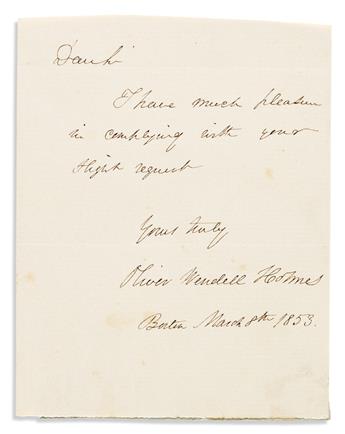 Dear Sir
I have much pleasure
in complying with your
slight request
Yours truly,
Oliver Wendell Holmes
Boston March 8th 1853.